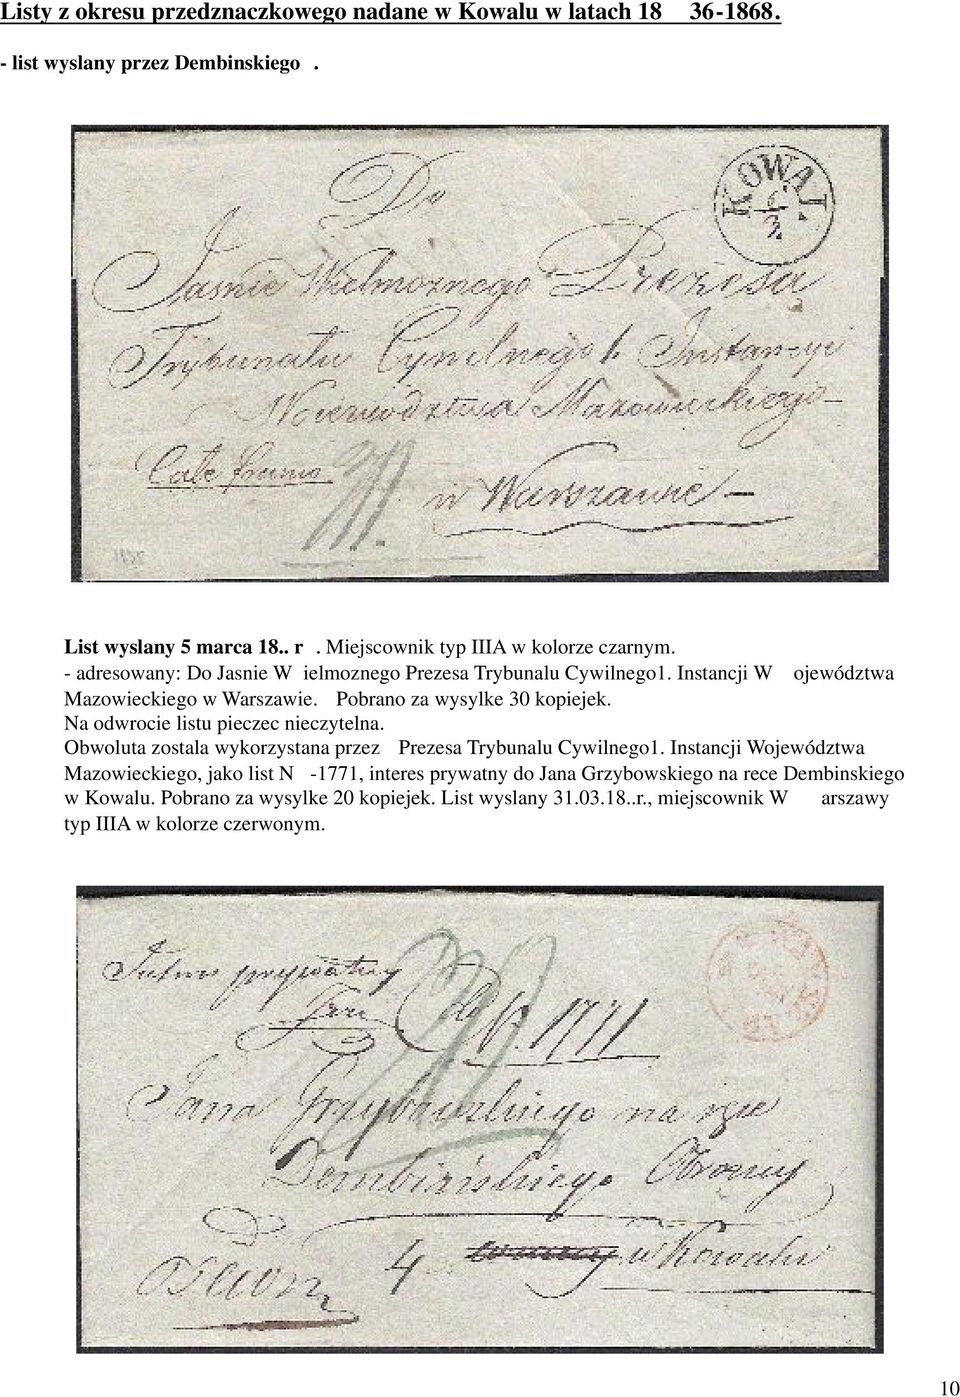 Listy z okresu przedznaczkowego nadane w Kowalu w latach 18 36-1868.
- list wyslany przez Dembinskiego .
KOWAL
Do
Jasnie Wielmoznego Prezesa
Trybunalu Cywilnego 1. Instancyi
Woiewództwa Mazowieckiego
Całe franco
w Warszawie
List wyslany 5 marca 18.. r . Miejscownik typ IIIA w kolorze czarnym.
- adresowany: Do Jasnie W ielmoznego Prezesa Trybunalu Cywilnego1. Instancji W ojewództwa
Mazowieckiego w Warszawie. Pobrano za wysylke 30 kopiejek.
Na odwrocie listu pieczec nieczytelna.
Obwoluta zostala wykorzystana przez Prezesa Trybunalu Cywilnego1. Instancji Województwa
Mazowieckiego, jako list N -1771, interes prywatny do Jana Grzybowskiego na rece Dembinskiego
w Kowalu. Pobrano za wysylke 20 kopiejek. List wyslany 31.03.18..r., miejscownik W arszawy
typ IIIA w kolorze czerwonym.
prywatny
do N. 1771
Jana Grzybowskiego na ręce
Dembińskiego
4 w Kowalu
10